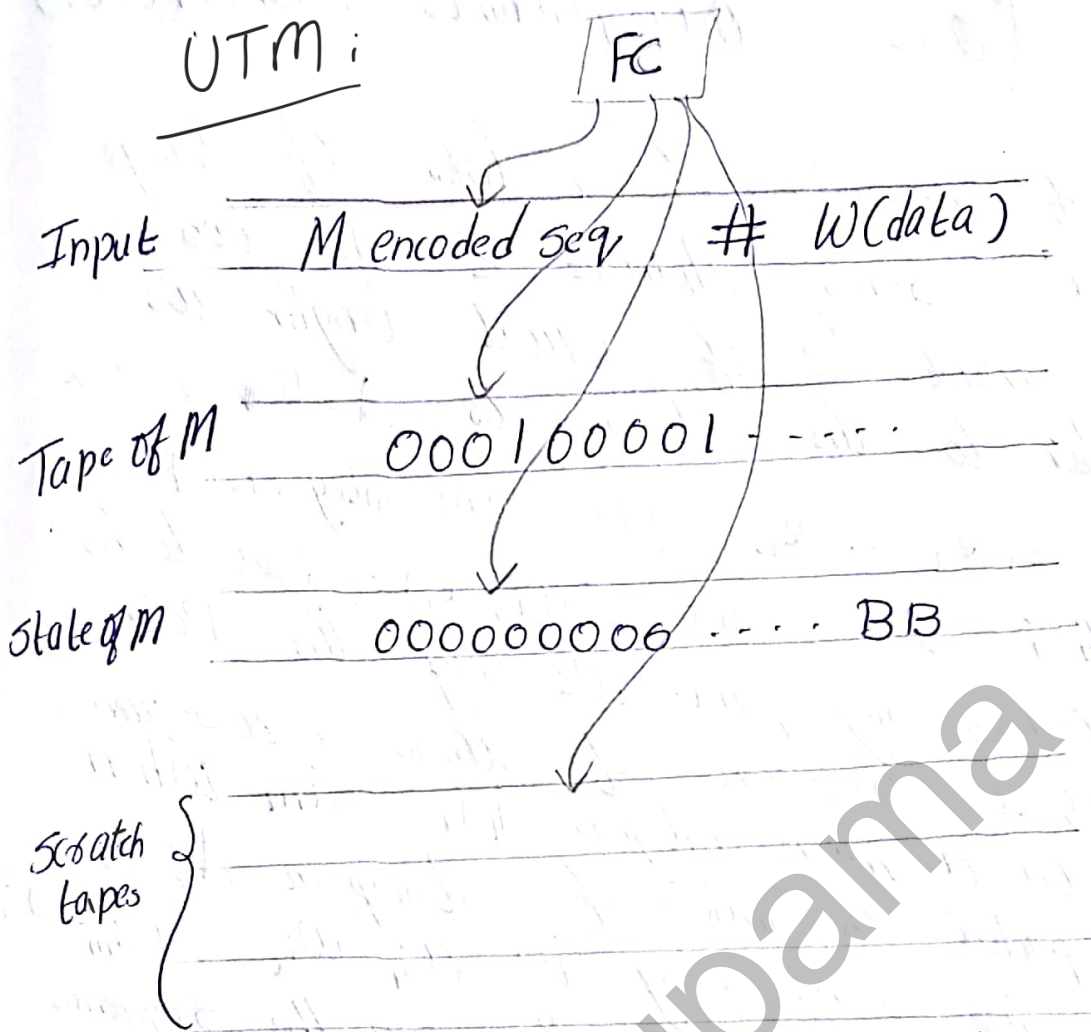 UTM :
FC
Input M encoded seq # W(data)
Tape of M 000100001 - - - - -
State of M 000000000 .... BB
Scratch
tapes